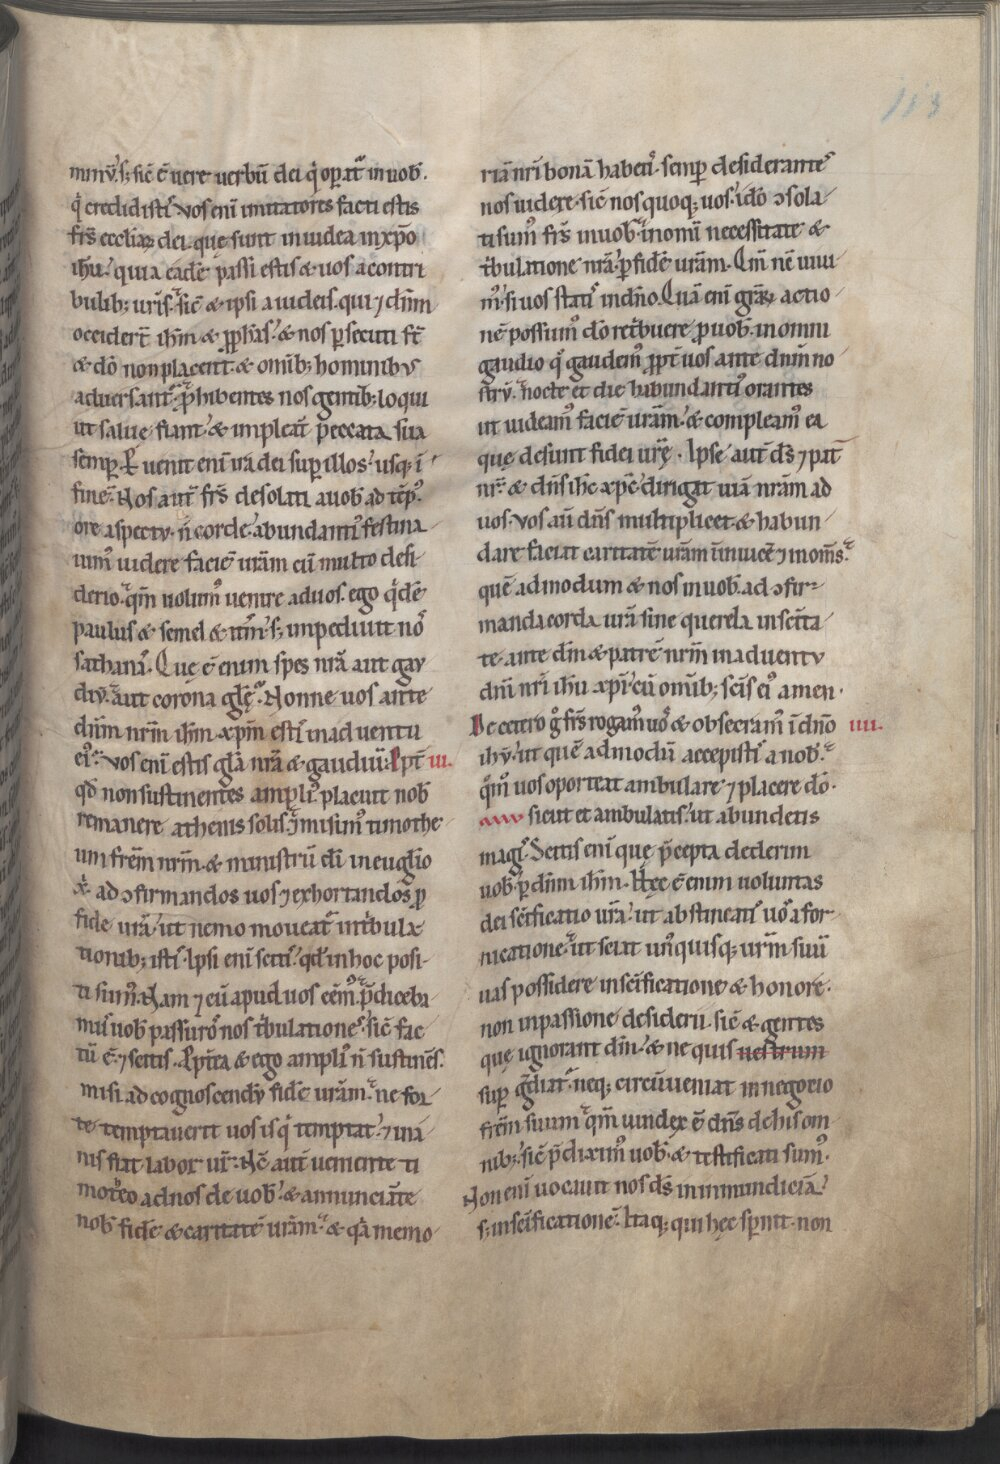 113
minū. s; sic̄ ē uere uerbū dei q̇ opat̄ in uob̄.
q̇ credidistī. vos enī imitatores facti estis
fr̄s eccl̄iaꝝ dei. que sunt in iudea in xp̄o
ih̄u. quia eadē passi estis & uos a contri
bulib; ur̄is. sic̄ & ipsi a iudeis. qui ⁊ dn̄m
occidert̄ ih̄m & pph̄as. & nos psecuti st̄
& dō non placent. & omib; hominibus
aduersant̄. phibentes nos gentib; loqui
ut salue fiant. & impleāt peccata sua
semp. Puenit enī ira dei sup illos. usq; ī
finē. Nos aut̄ fr̄s desolati a uob̄ ad tēp9
ore aspectu. n̄ corde. abundanti9 festina
uim9 uidere faciē urām cū multo desi
derio. qm̄ uolum9 uenire ad uos. ego q̇dē
paulus & semel & itm̄. s; impediuit nos
sathanas. Que ē enim spes nrā aut gau
diū. aut corona glē. Nonne uos ante
dn̄m nrm̄ ih̄m xp̄m estis in aduentu
ei9. vos enī estis glā nrā & gaudiū. Ppt̄ III.
qd̄ non sustinentes ampli9 placuit nob̄
remanere athenis solis. ⁊ misim9 timothe
um frēm nrm̄. & ministrū dī in euglīo
x̄. ad ɔfirmandos uos ⁊ exhortandos p
fide urā. ut nemo moueat̄ in tbula
tionib; istis. Ipsi enī scitis. qd̄ in hoc posi
ti sum9. Nam ⁊ cū apud uos eēm9. pdiceba
mus uob̄ passuros nos tbulationes. sic̄ fac
tū ē. ⁊ scitis. Ppt̄ea & ego ampli9 n̄ sustinēs.
misi ad cognoscendū fidē urām. ne for
te temptauerit uos is q̇ temptat. ⁊ inā
nis fiat labor ur̄. Nc̄ aut̄ ueniente ti
motheo ad nos de uob̄. & annunciāte
nob̄ fidē & caritatē urām. & qa memo
riā nrī bonā habetis. semp desiderantes
nos uidere. sic̄ nos quoq; uos. idō ɔsola
ti sum9 fr̄s in uob̄. in omi necessitate &
tbulatione nrā. p fidē urām. Qm̄ nc̄ uiui
m9. si uos statis in dn̄o. Quā enī graꝝ actio
nē possum9 dō retbuere p uob̄. in omni
gaudio q̇ gaudem9 ppt̄ uos ante dn̄m no
strū. nocte et die habundanti9 orantes
ut uideam9 faciē urām. & compleam9 ea
que desunt fidei urē. Ipse aut̄ ds̄ ⁊ pat̄
nr̄. & dn̄s ih̄c xp̄c dirigat uiā nrām ad
uos. vos aū dn̄s multiplicet & habun
dare faciat caritatē urām in inuicē ⁊ in om̄s.
quē admodum & nos in uob̄. ad ɔfir
manda corda urā sine querela in sc̄ita
te. ante dm̄ & patrē nrm̄ in aduentu
dn̄i nrī ih̄u xp̄i. cū omib; sc̄is ei9 amen.
De cetero g̊ fr̄s rogam9 uos & obsecram9 ī dn̄o IIII.
ih̄u. ut quē admodū accepistis a nob̄.
qm̄o uos oporteat ambulare ⁊ placere dō.
sicut et ambulatis. ut abundetis
magis. Scitis enī que pcepta dederim
uob̄. p dn̄m ih̄m. Hec ē enim uoluntas
dei sc̄ificatio urā. ut abstineatis uos a for
nicatione. ut sciat un9quisq; urm̄ suū
uas possidere in sc̄ificatione & honore.
non in passione desiderii. sic̄ & gentes
que ignorant dm̄. & ne quis uestrum
sup g̊diat̄. neq; circūueniat in negotio
frēm suum. qm̄ uindex ē dn̄s de his om
nib;. sic̄ pdixim9 uob̄. & testificati sum9.
Non enī uocauit nos ds̄ in inmundiciā.
s; in sc̄ificationē. Itaq; qui hec spnit. non